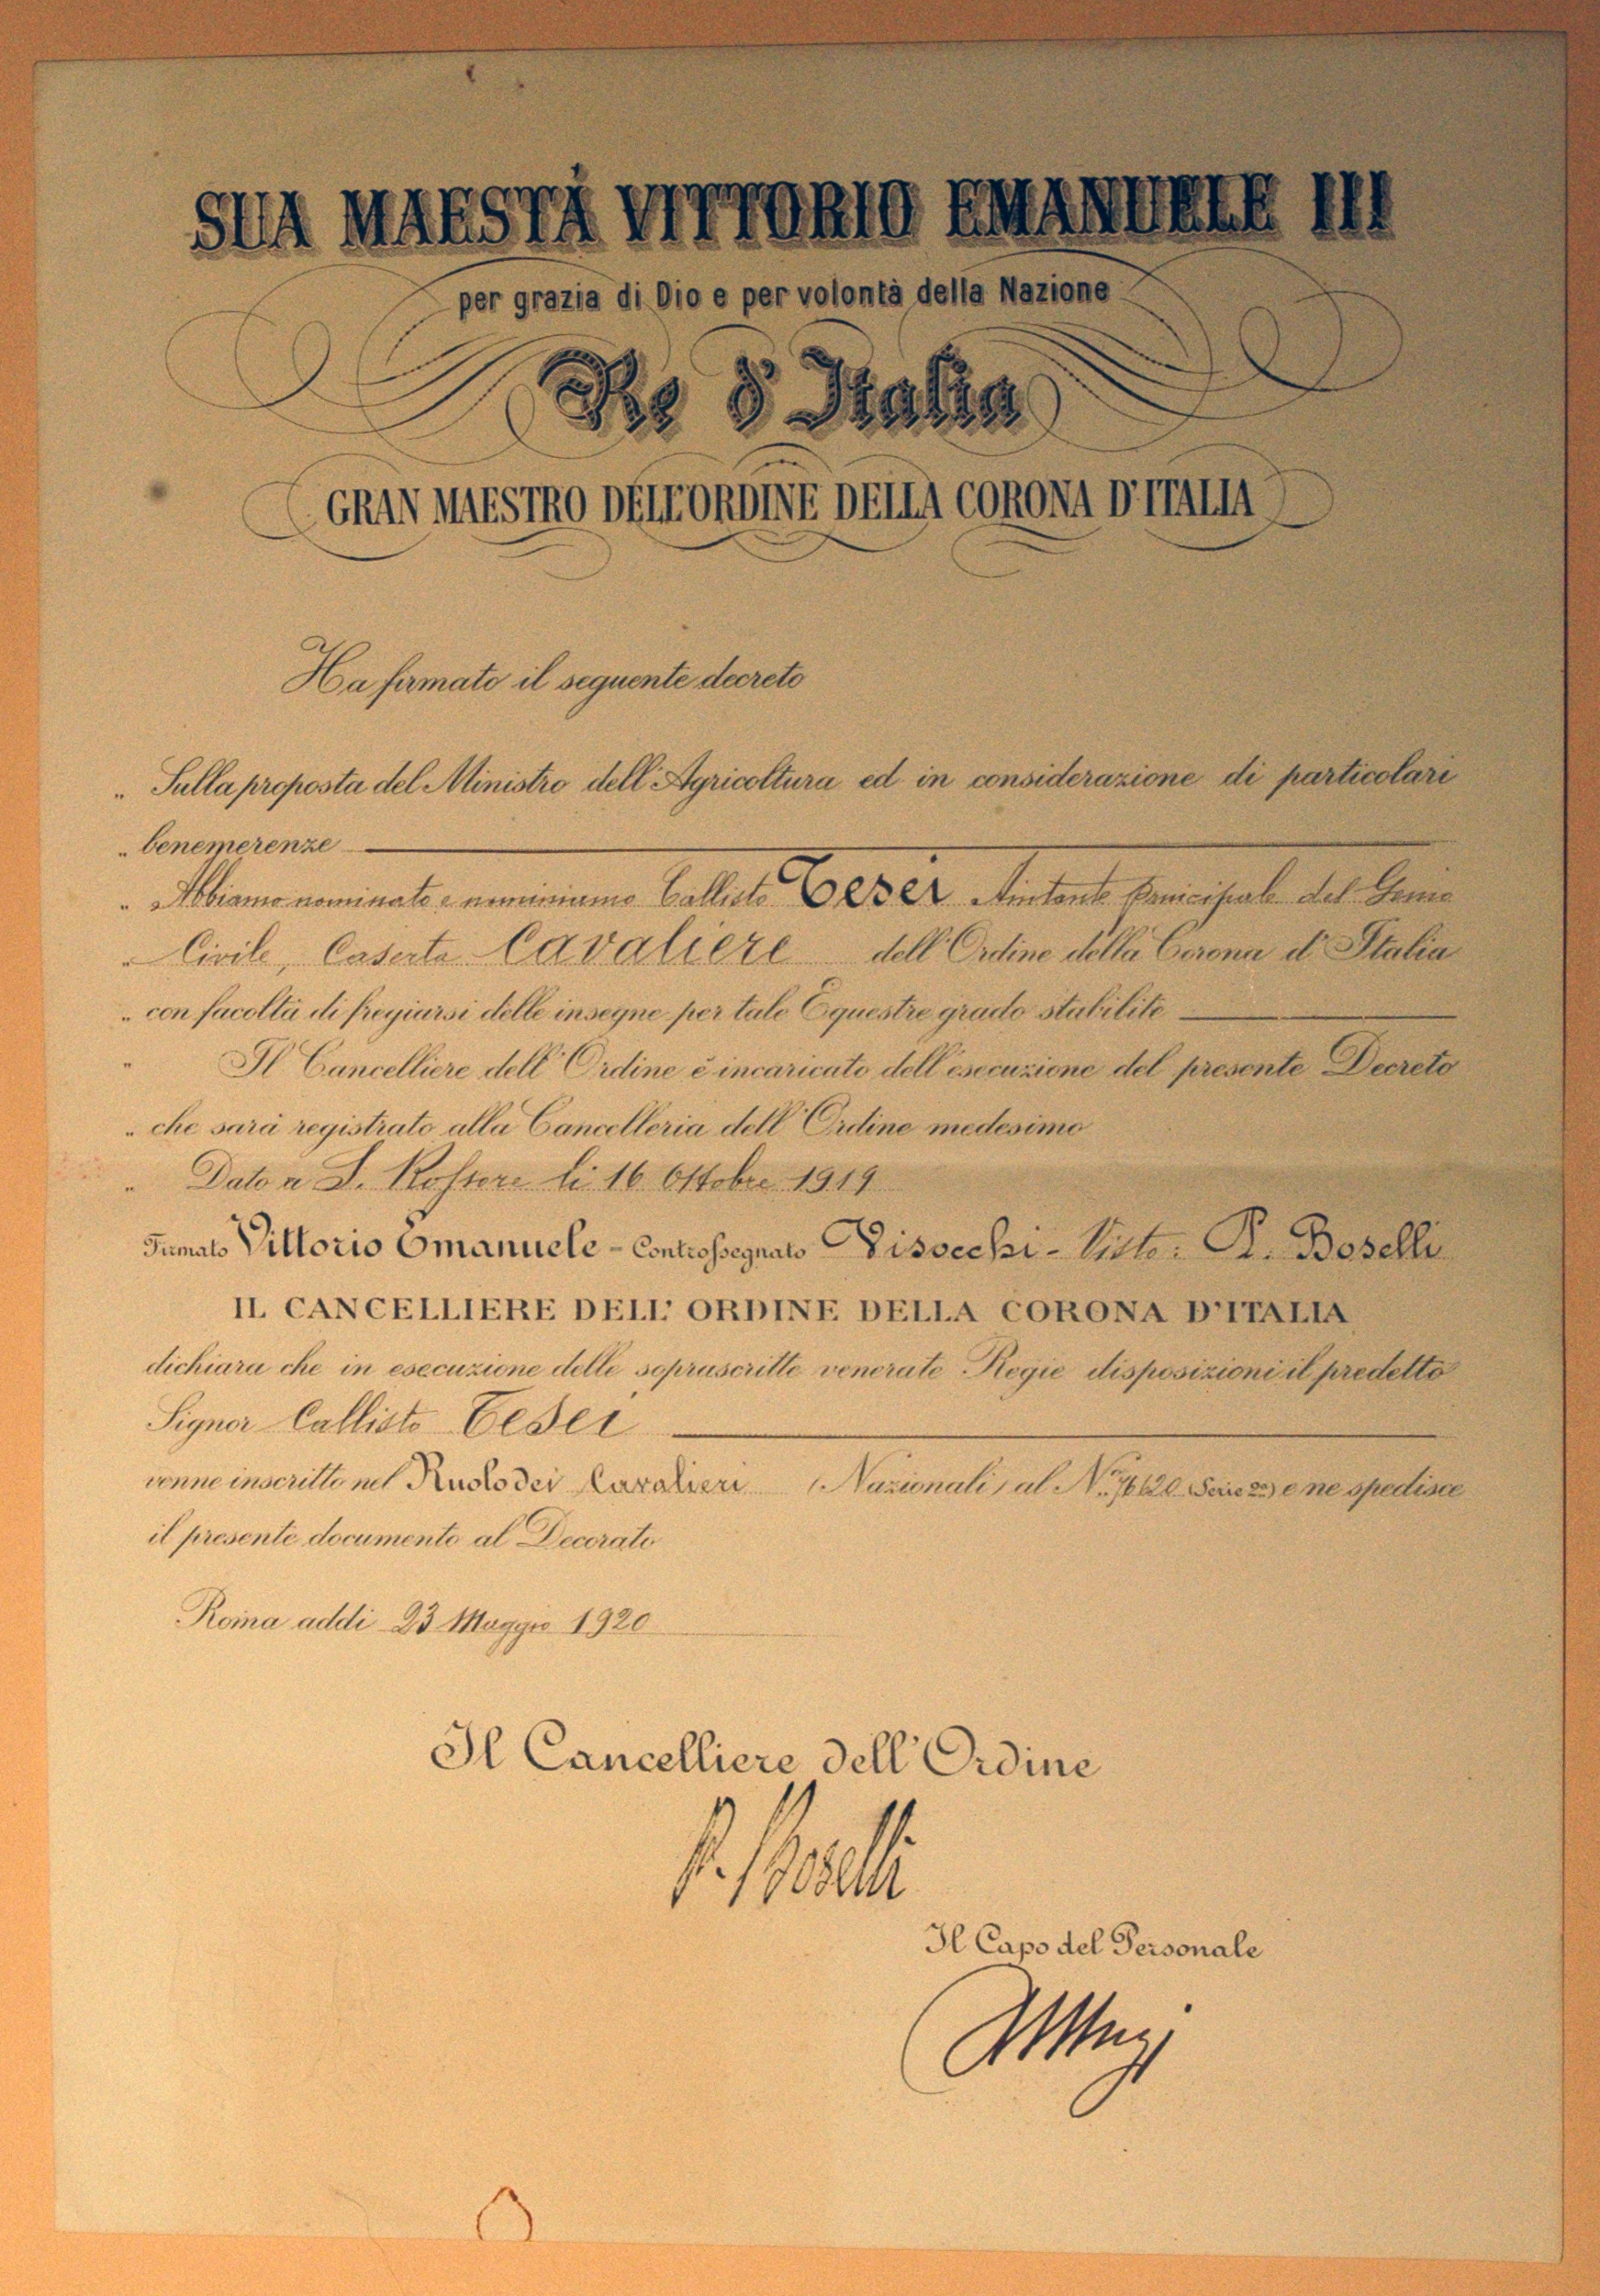 SUA MAESTÀ VITTORIO EMANUELE III
per grazia di Dio e per volontà della Nazione
Re d'Italia
GRAN MAESTRO DELL'ORDINE DELLA CORONA D'ITALIA
Ha firmato il seguente decreto
„ Sulla proposta del Ministro dell'Agricoltura ed in considerazione di particolari
„ benemerenze
„ Abbiamo nominato e nominiamo Callisto Tesei Aiutante Principale del Genio
„ Civile, Caserta Cavaliere dell'Ordine della Corona d'Italia
„ con facoltà di fregiarsi delle insegne per tale Equestre grado stabilite
„ Il Cancelliere dell'Ordine è incaricato dell'esecuzione del presente Decreto
„ che sarà registrato alla Cancelleria dell'Ordine medesimo
„ Dato a S. Rossore li 16 Ottobre 1919
Firmato Vittorio Emanuele - Controssegnato Visocchi - Visto: P. Boselli
IL CANCELLIERE DELL' ORDINE DELLA CORONA D'ITALIA
dichiara che in esecuzione delle soprascritte venerate Regie disposizioni il predetto
Signor Callisto Tesei
venne inscritto nel Ruolo dei Cavalieri (Nazionali) al N. 76620 (Serie 2a) e ne spedisce
il presente documento al Decorato
Roma addì 23 Maggio 1920
Il Cancelliere dell'Ordine
P. Boselli
Il Capo del Personale